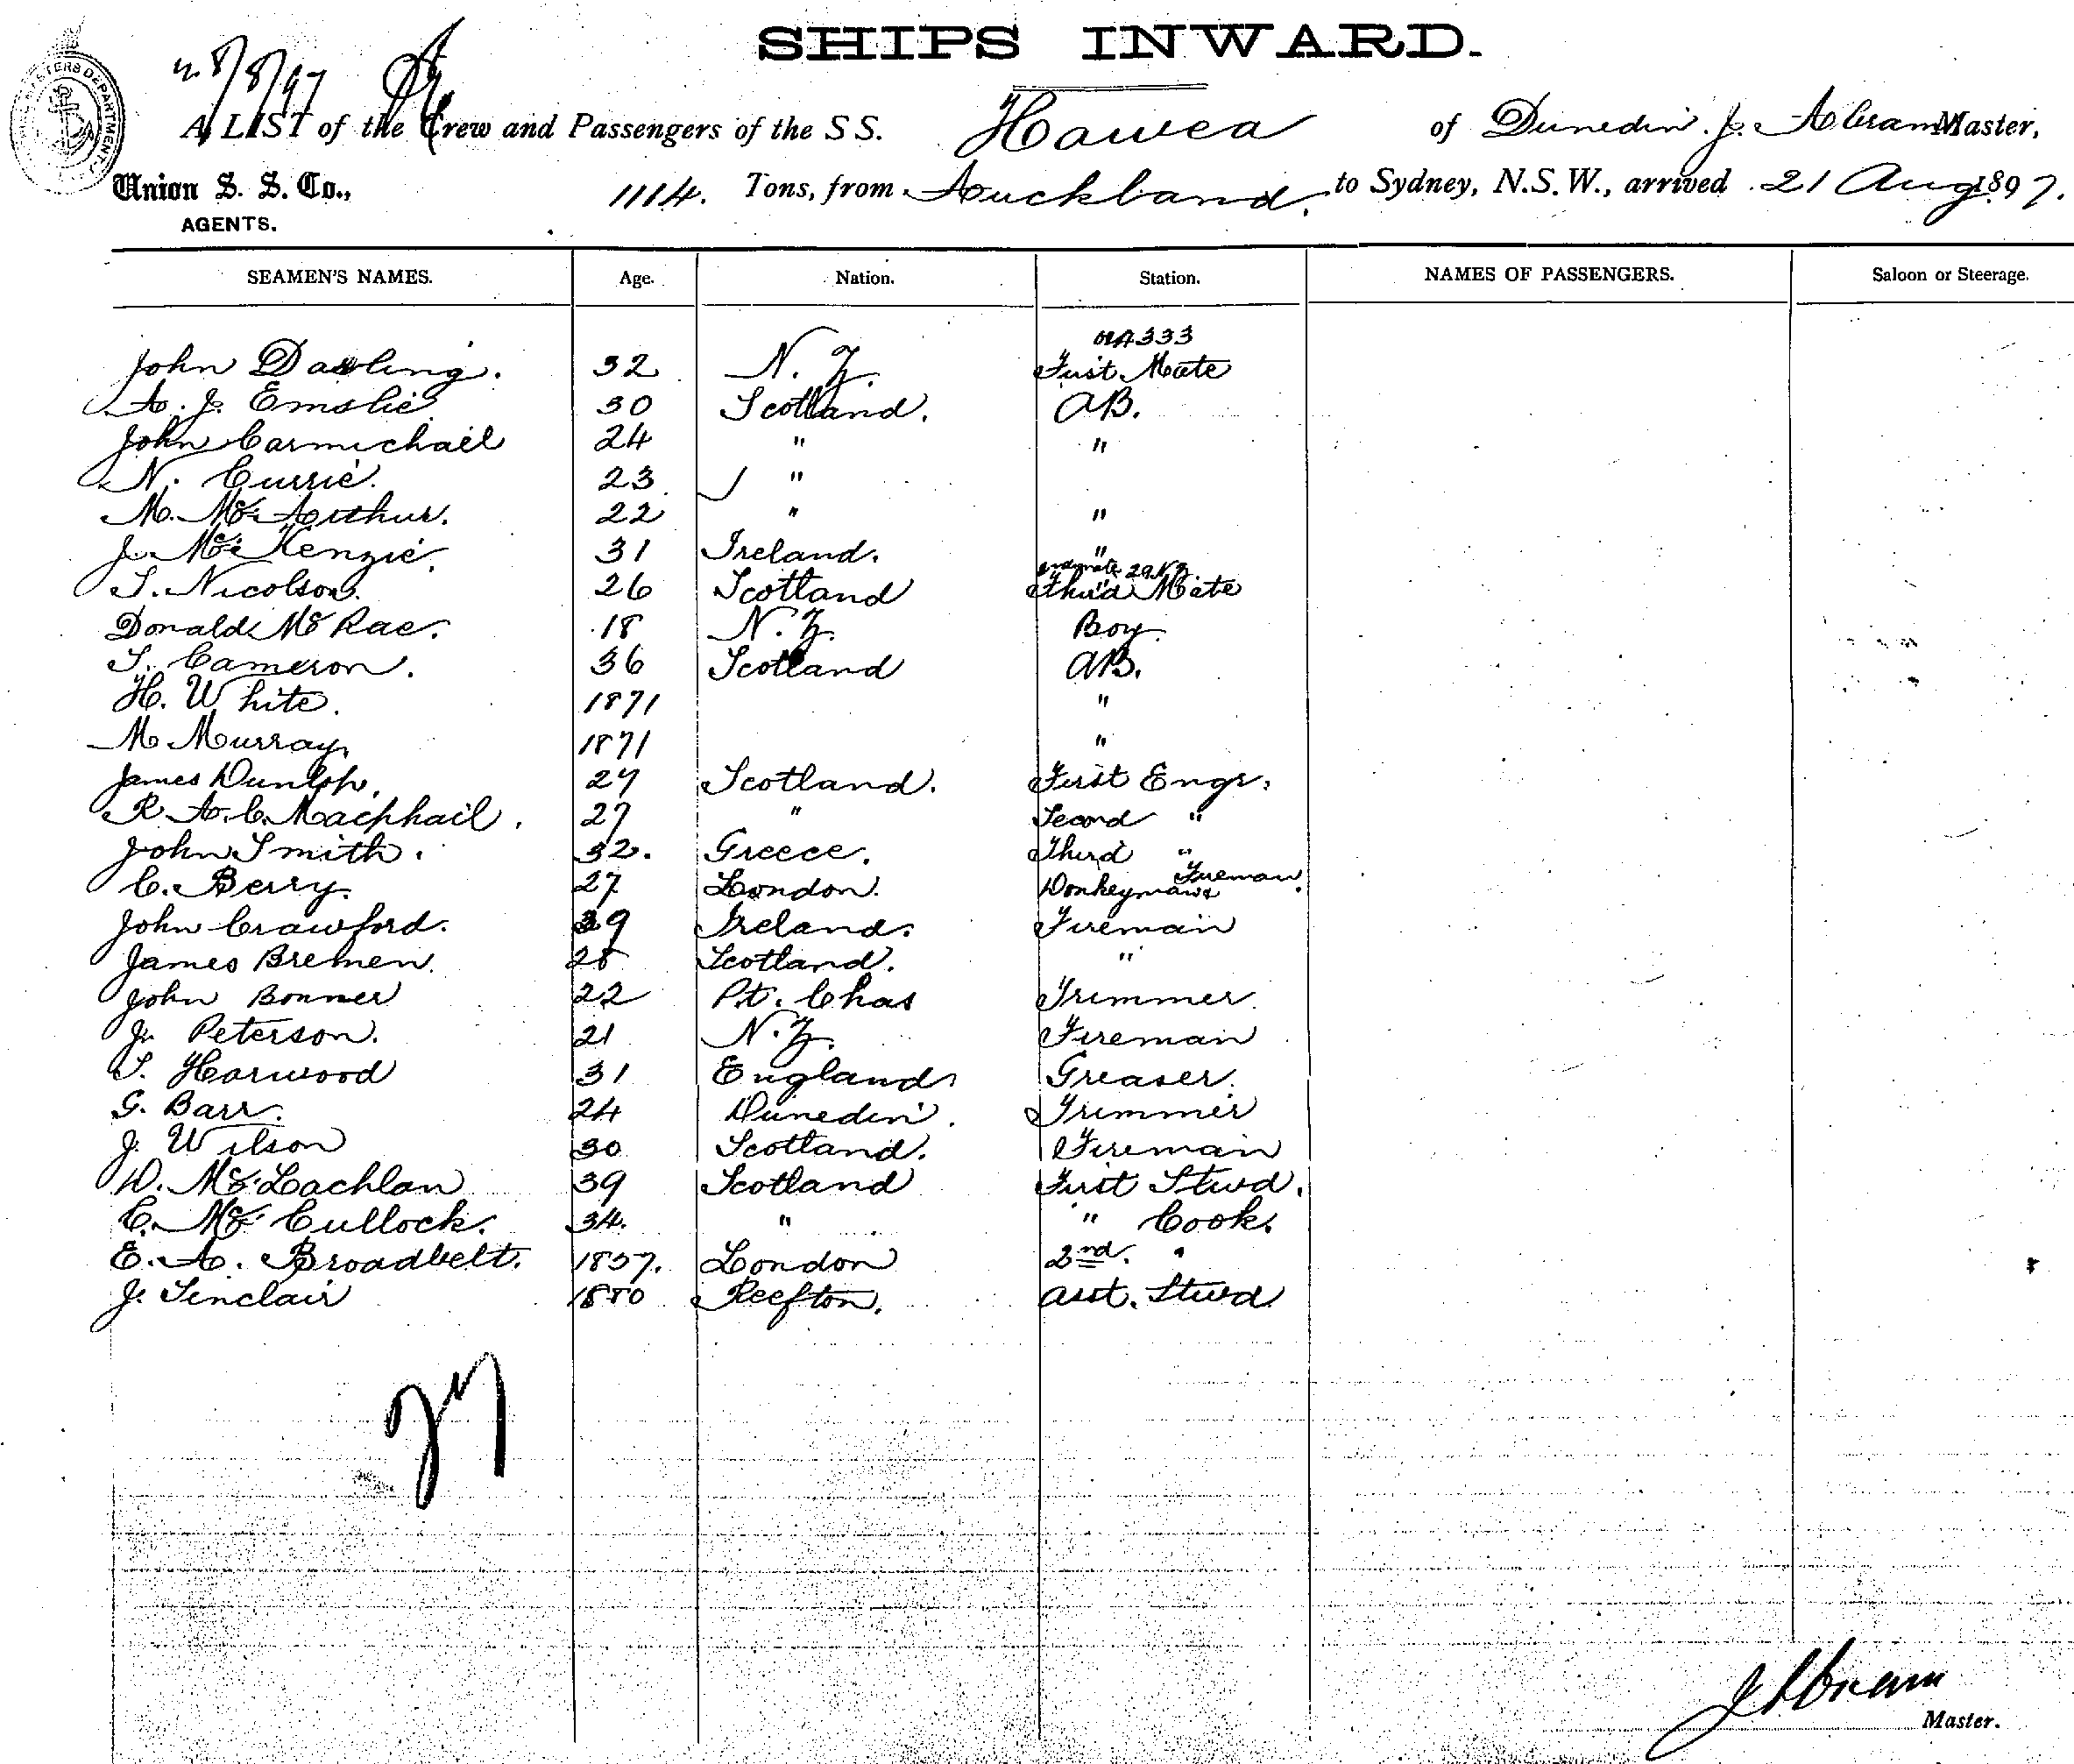 SHIPS INWARD.
A LIST of the Crew and Passengers of the S S. Hawea of Dunedin. J. Abram Master,
Union S. S. Co., AGENTS.
1114. Tons, from Auckland. to Sydney, N.S.W., arrived 21 Aug 1897.
SEAMEN'S NAMES. Age. Nation. Station. NAMES OF PASSENGERS. Saloon or Steerage.
John Dawling. 32 N. Z. First Mate
A. J. Emslie 30 Scotland. AB.
John Carmichael 24 " "
N. Currie. 23 "
M. McArthur. 22 " "
J. McKenzie. 31 Ireland. "
S. Nicolson. 26 Scotland Third Mate
Donald McRae. 18 N. Z. Boy
S. Cameron. 36 Scotland AB.
H. White. 1871 "
M Murray. 1871 "
James Dunlop. 27 Scotland. First Engr.
R A. C. Macphail. 27 " Second "
John Smith. 32. Greece. Third "
C. Berry. 27 London. Donkeyman & Fireman.
John Crawford. 39 Ireland. Fireman
James Bremen. 28 Scotland. "
John Bonner 22 Pt. Chas Trimmer.
J. Peterson. 21 N. Z. Fireman
S. Harwood 31 England Greaser.
G. Barr. 24 Dunedin. Trimmer
J. Wilson 30 Scotland. Fireman
D. McLachlan 39 Scotland First Stwd.
C. McCullock. 34. " " Cook.
E. A. Broadbelt. 1857. London 2nd. "
J. Sinclair 1880 Reefton. Asst. Stwd
27
J Abram
Master.